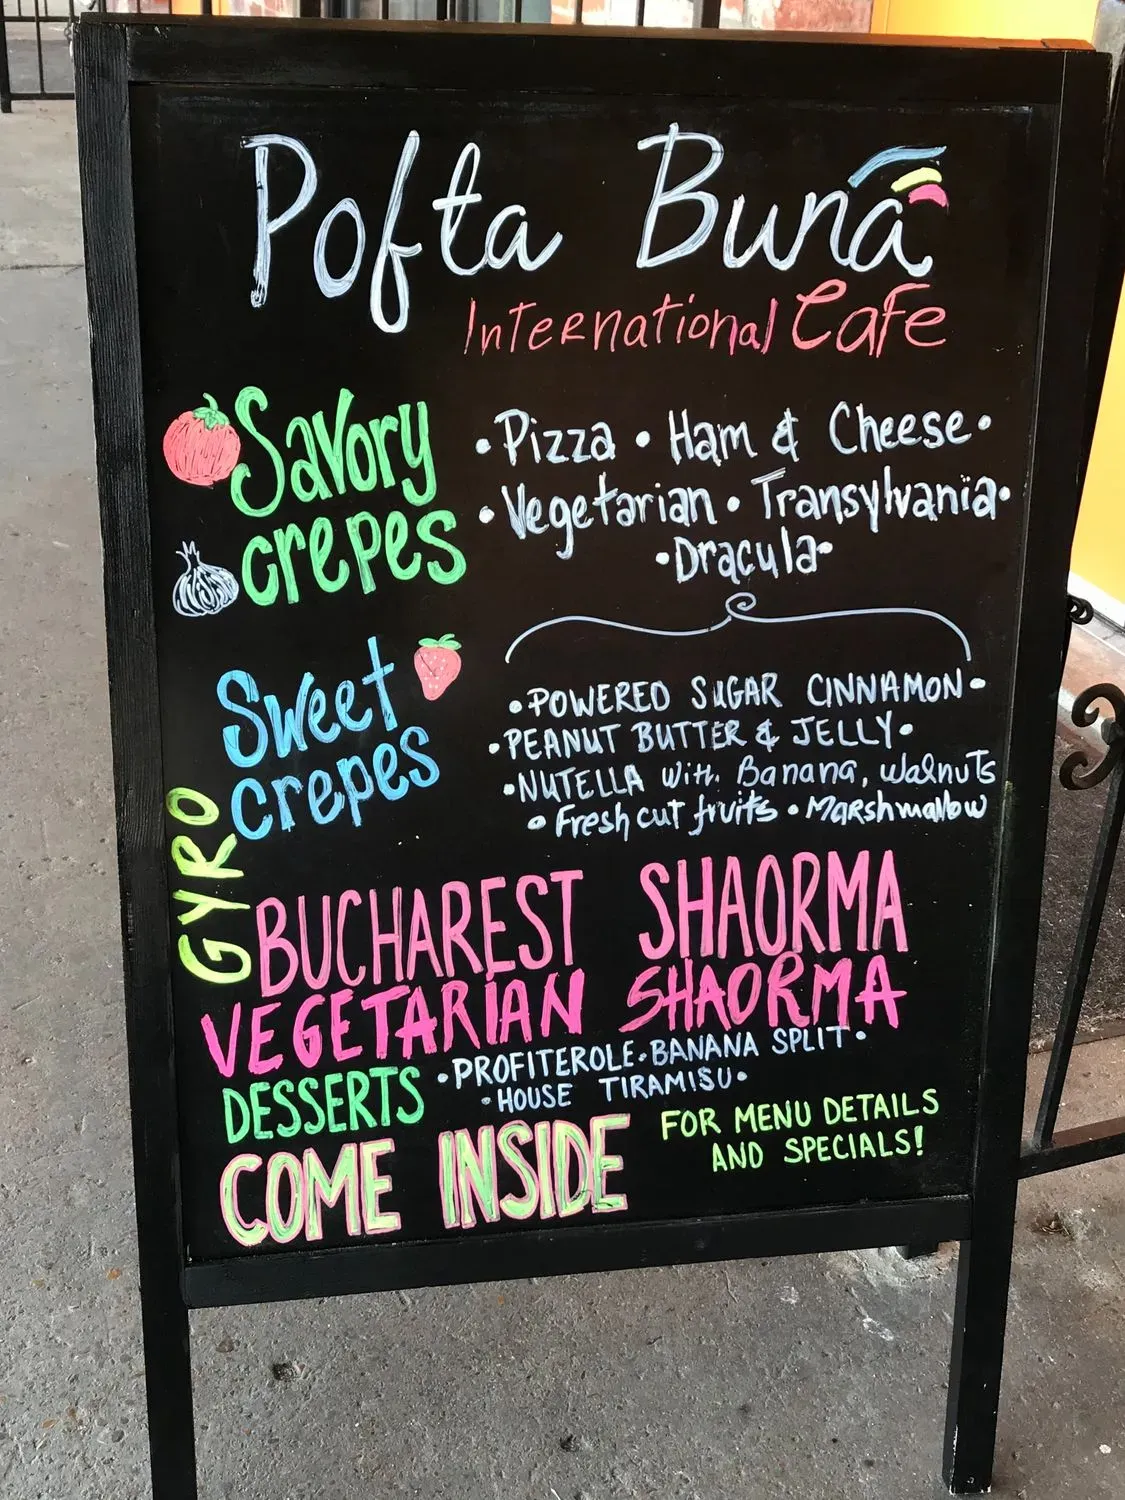 Pofta Bună
International Cafe
Savory crepes
• Pizza • Ham & Cheese •
• Vegetarian • Transylvania •
• Dracula •
Sweet crepes
• POWERED SUGAR CINNAMON •
• PEANUT BUTTER & JELLY •
• NUTELLA with Banana, walnuts
• Fresh cut fruits • Marshmallow
GYRO
BUCHAREST SHAORMA
VEGETARIAN SHAORMA
DESSERTS • PROFITEROLE • BANANA SPLIT •
• HOUSE TIRAMISU •
COME INSIDE FOR MENU DETAILS
AND SPECIALS!